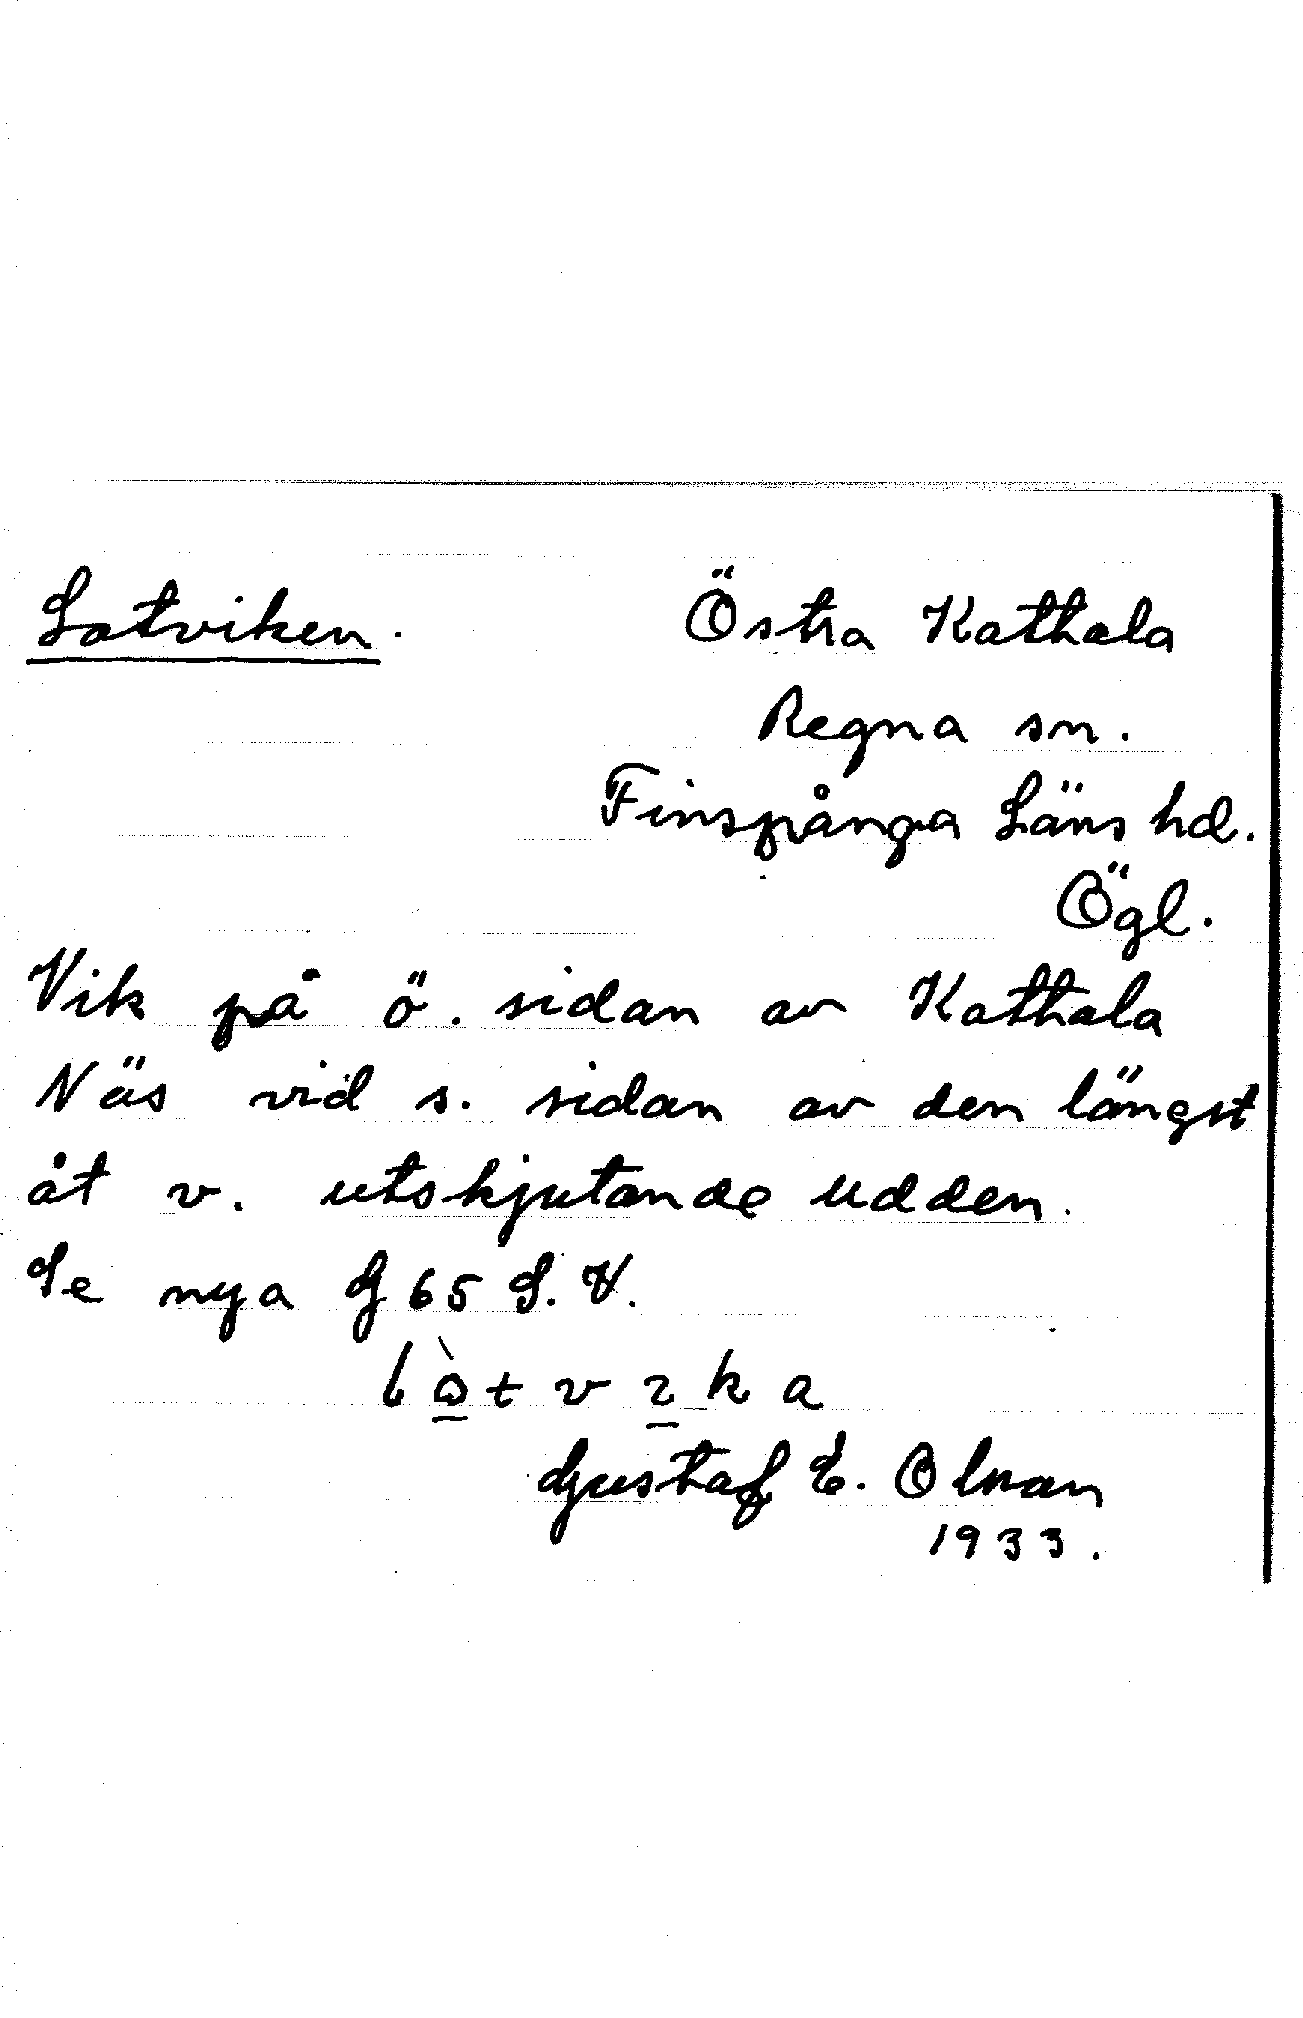 Latviken. Östra Katthala
Regna sn.
Finspånga Läns hd.
Ögl.
Vik på ö. sidan av Katthala
Näs vid s. sidan av den längst
åt v. utskjutande udden.
Se nya G 65 S. V.
Gustaf E. Olnan
1933.